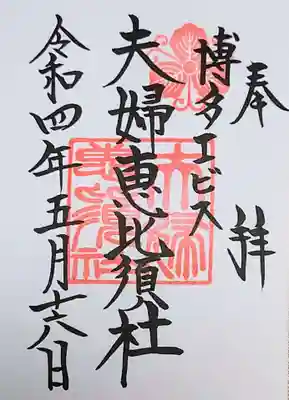 奉拝
博多エビス
夫婦恵比須社
令和四年五月十六日